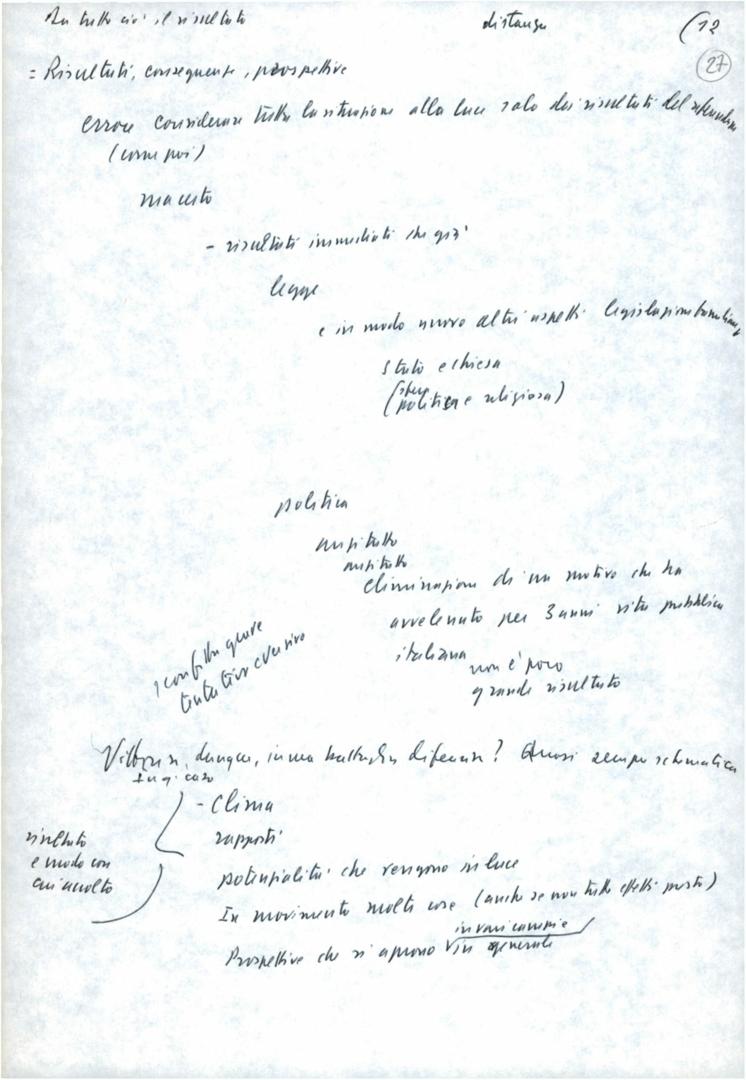 In tutto ciò il risultato
distanza
(12
27
= Risultati, conseguenze, prospettive
errore considerare tutta la situazione alla luce solo dei risultati del referendum
(come poi)
ma certo
- risultati immediati che già
legge
e in modo nuovo altri aspetti legislazione
Stato e chiesa
(
politica e religiosa)
politica
anzitutto
anzitutto
eliminazione di un motivo che ha
avvelenato per 3 anni vita pubblica
italiana
non è poco
grande risultato
sconfitta grave
tentativo eversivo
Vittoria, dunque, in una battaglia difensiva? Quasi sempre schematica
In q. caso
- Clima
rapporti
risultato
e modo con
cui accolto
potenzialità che vengono in luce
In movimento molte cose (anche se non tutto effetti presto)
in vari campi e
Prospettive che si aprono in generale